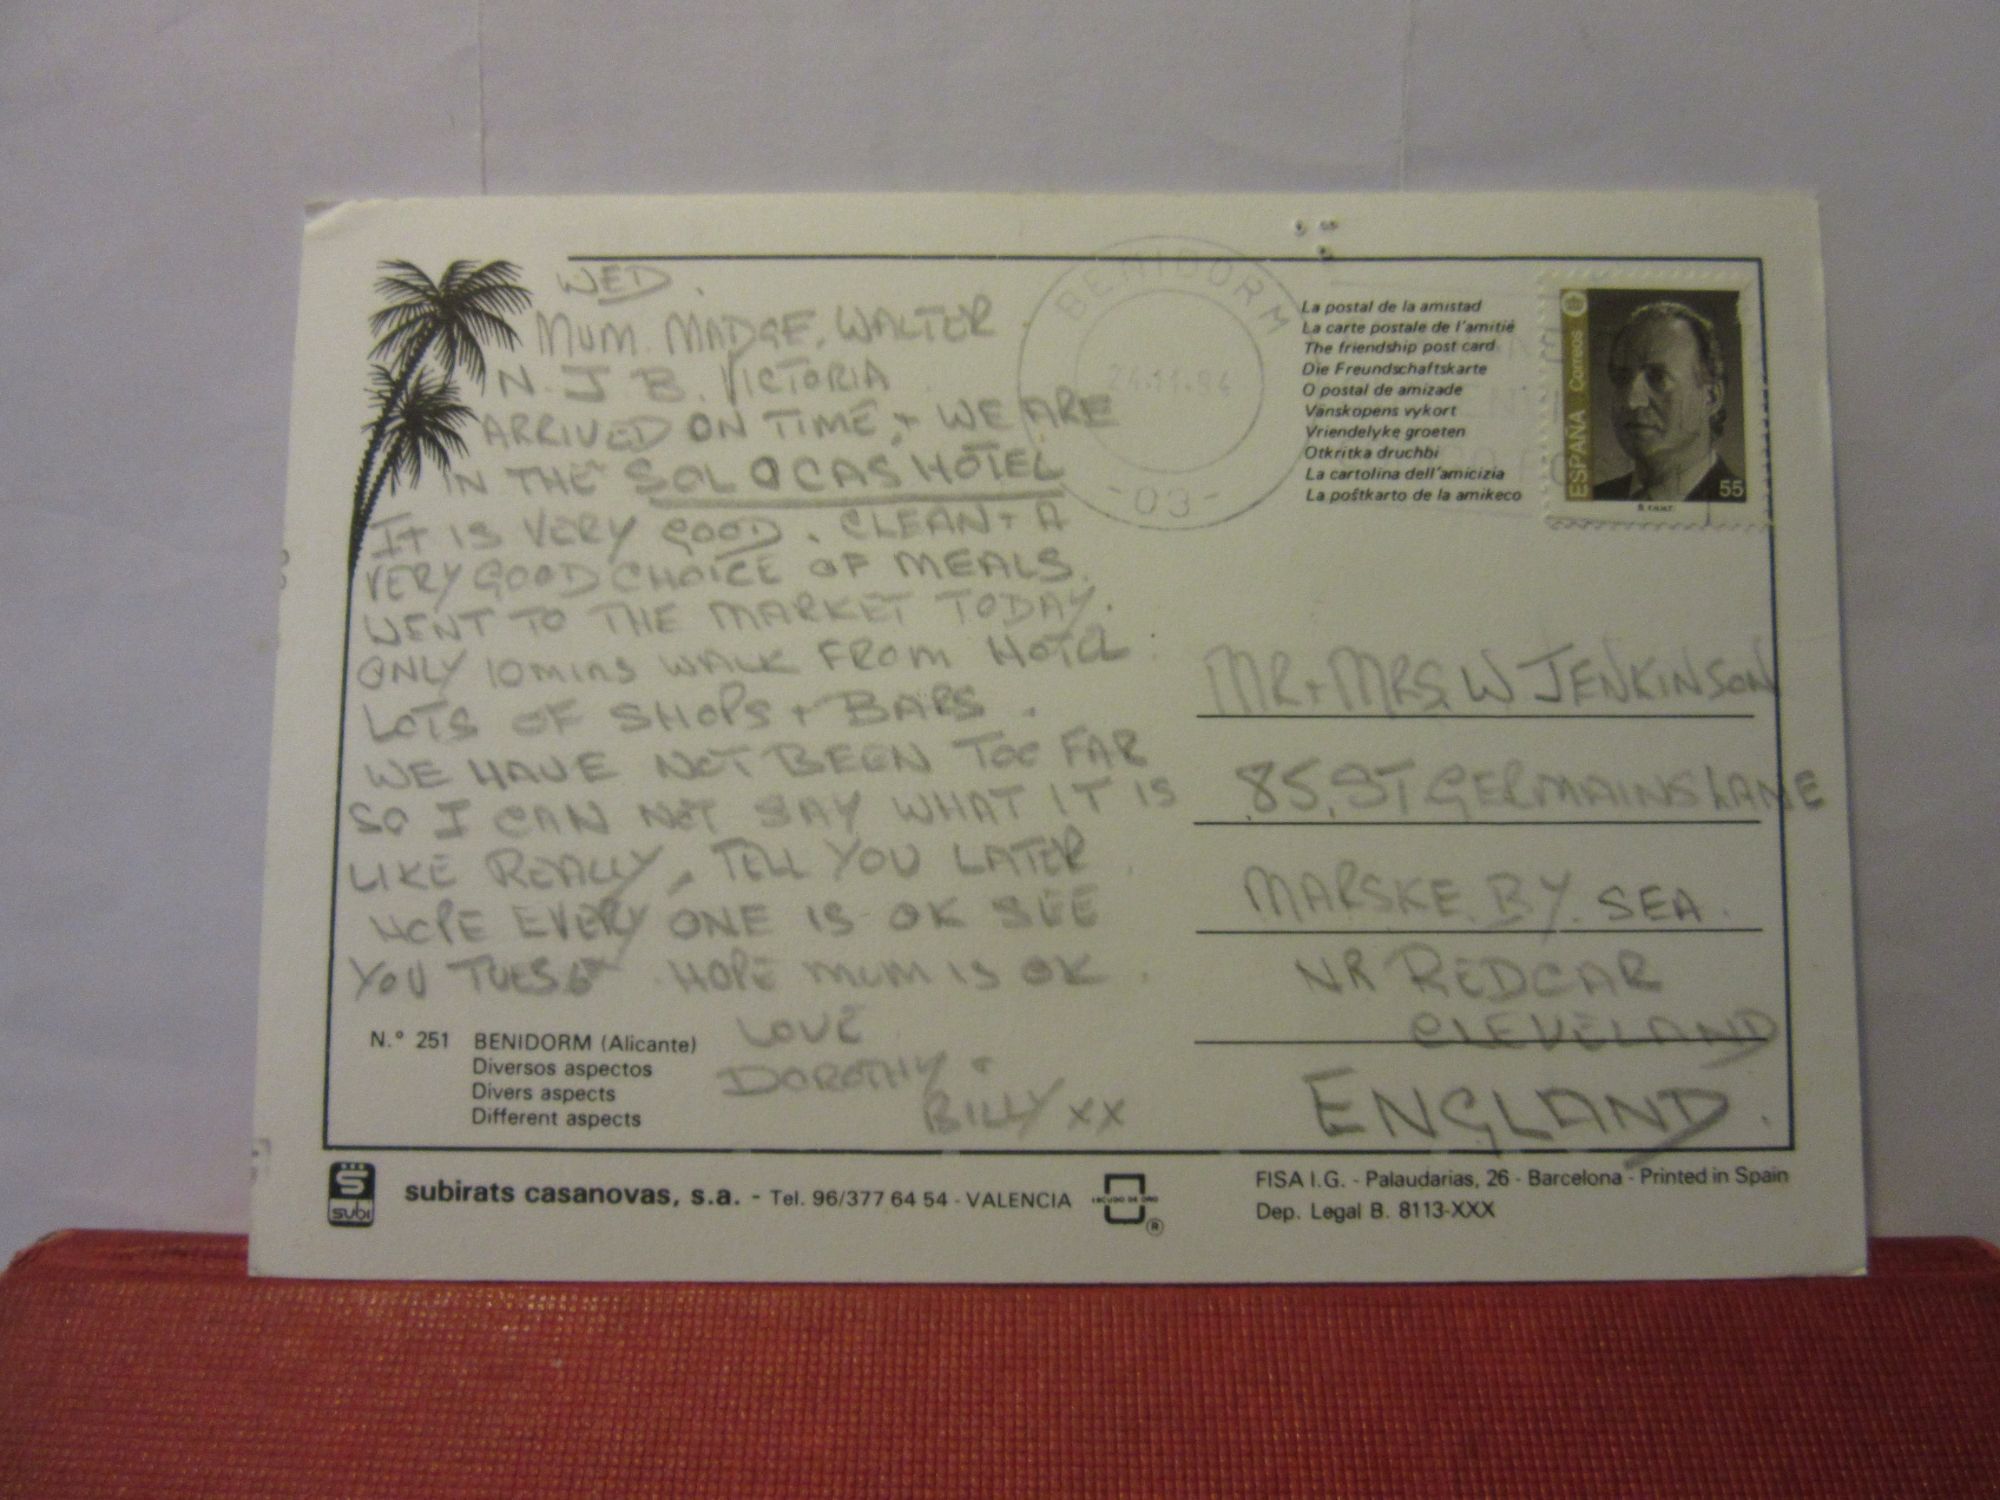 WED.
MUM. MADGE, WALTER
N. J B. VICTORIA
ARRIVED ON TIME, + WE ARE
IN THE SOL OCAS HOTEL
IT IS VERY GOOD. CLEAN + A
VERY GOOD CHOICE OF MEALS.
WENT TO THE MARKET TODAY.
ONLY 10 mins WALK FROM HOTEL
LOTS OF SHOPS + BARS.
WE HAVE NOT BEEN TOO FAR
SO I CAN NOT SAY WHAT IT IS
LIKE REALLY, TELL YOU LATER
HOPE EVERY ONE IS OK SEE
YOU TUES HOPE MUM IS OK
LOVE
DOROTHY +
BILLY XX
N.° 251 BENIDORM (Alicante)
Diversos aspectos
Divers aspects
Different aspects
BENIDORM
-03-
La postal de la amistad
La carte postale de l'amitié
The friendship post card
Die Freundschaftskarte
O postal de amizade
Vänskopens vykort
Vriendelyke groeten
Otkritka druchbi
La cartolina dell'amicizia
La poŝtkarto de la amikeco
ESPAÑA Correos
55
MR + MRS W JENKINSON
85, ST GERMAINS LANE
MARSKE. BY. SEA.
NR REDCAR
CLEVELAND
ENGLAND.
S
subi
subirats casanovas, s.a. - Tel. 96/377 64 54 - VALENCIA
ESCUDO DE ORO
®
FISA I.G. - Palaudarias, 26 - Barcelona - Printed in Spain
Dep. Legal B. 8113-XXX